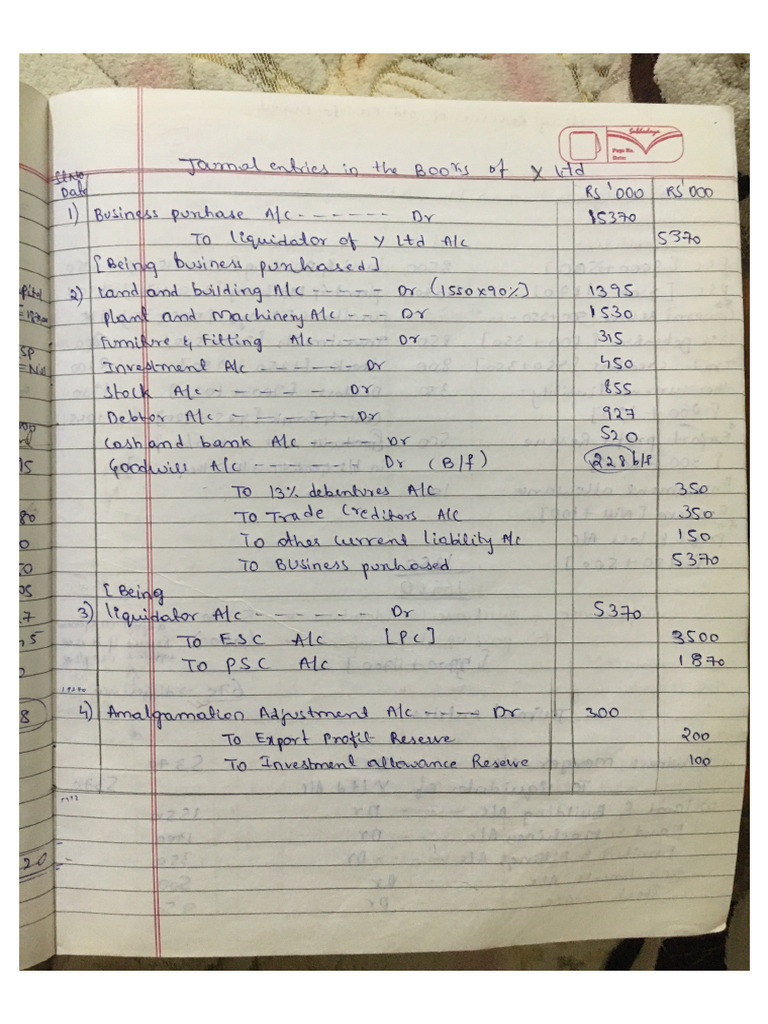 Sakhalaya
Page No.
Date:
Jarnol entries in the Books of X Ltd
Sl.No
Date Rs '000 Rs '000
1) Business purchase A/c - - - - - - Dr 15370
To liquidator of Y Ltd A/c 5370
[Being business purchased]
2) Land and building A/c - - - - - Dr (1550x90%) 1395
Plant and Machinery A/c - - - Dr 1530
Furniture & Fitting A/c - - - Dr 315
Investment A/c - - - - - Dr 450
Stock A/c - - - - - Dr 855
Debtor A/c - - - - - - Dr 927
Cash and bank A/c - - - - Dr 520
Goodwill A/c - - - - - Dr (B/f) 228 b/f
To 13% debentures A/c 350
To Trade Creditors A/c 350
To other current liability A/c 150
To Business purchased 5370
[Being
3) liquidator A/c - - - - - - - Dr 5370
To ESC A/c [PC] 3500
To PSC A/c 1870
4) Amalgamation Adjustment A/c - - - - Dr 300
To Export Profit Reserve 200
To Investment allowance Reserve 100